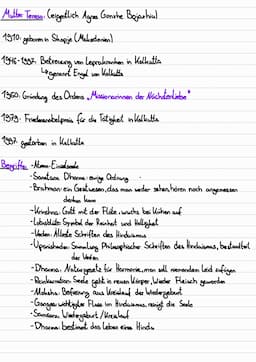 Mutter Teresa: (eigentlich Agnes Gonxhe Bojaxhiu)
1910: geboren in Skopje (Makedonien)
1946-1997: Betreuung von Leprakranken in Kalkutta
↳ genannt Engel von Kalkutta
1950: Gründung des Ordens „Missionarinnen der Nächstenliebe"
1979: Friedensnobelpreis für die Tätigkeit in Kalkutta
1997: gestorben in Kalkutta
Begriffe: - Atman: Einzelseele
- Sanatana Dharma: ewige Ordnung
- Brahman: ein Geistwesen, das man weder sehen, hören noch angemessen
denken kann
- Krishna: Gott mit der Flöte, wuchs bei Kühen auf
- Lotusblüte: Symbol der Reinheit und Heiligkeit
- Veden: Älteste Schriften des Hinduismus
- Upanishaden: Sammlung Philosophischer Schriften des Hinduismus, bestandteil
der Veden
- Dharma: Naturgesetz für Harmonie, man soll niemandem Leid zufügen
- Reinkarnation: Seele geht in neuen Körper, Wieder Fleisch geworden
- Moksha: Befreiung aus Kreislauf der Wiedergeburt
- Ganges: wichtigster Fluss im Hinduismus, reinigt die Seele
- Samsara: Wiedergeburt / Kreislauf
- Dharma: bestimmt das Leben eines Hindu